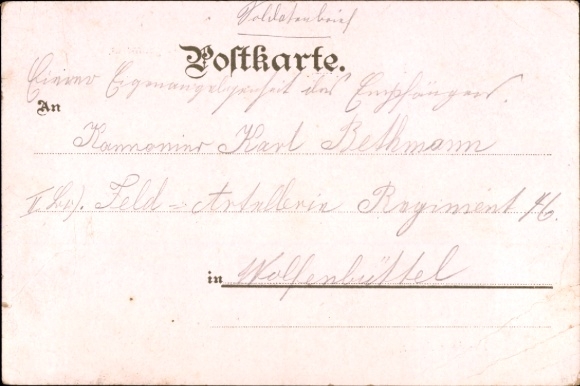 Soldatenbrief
Postkarte.
Eigene Angelegenheit des Empfängers.
An
Kannonier Karl Bethmann
Feld-Artellerie Regiment 46.
in Wolfenbüttel